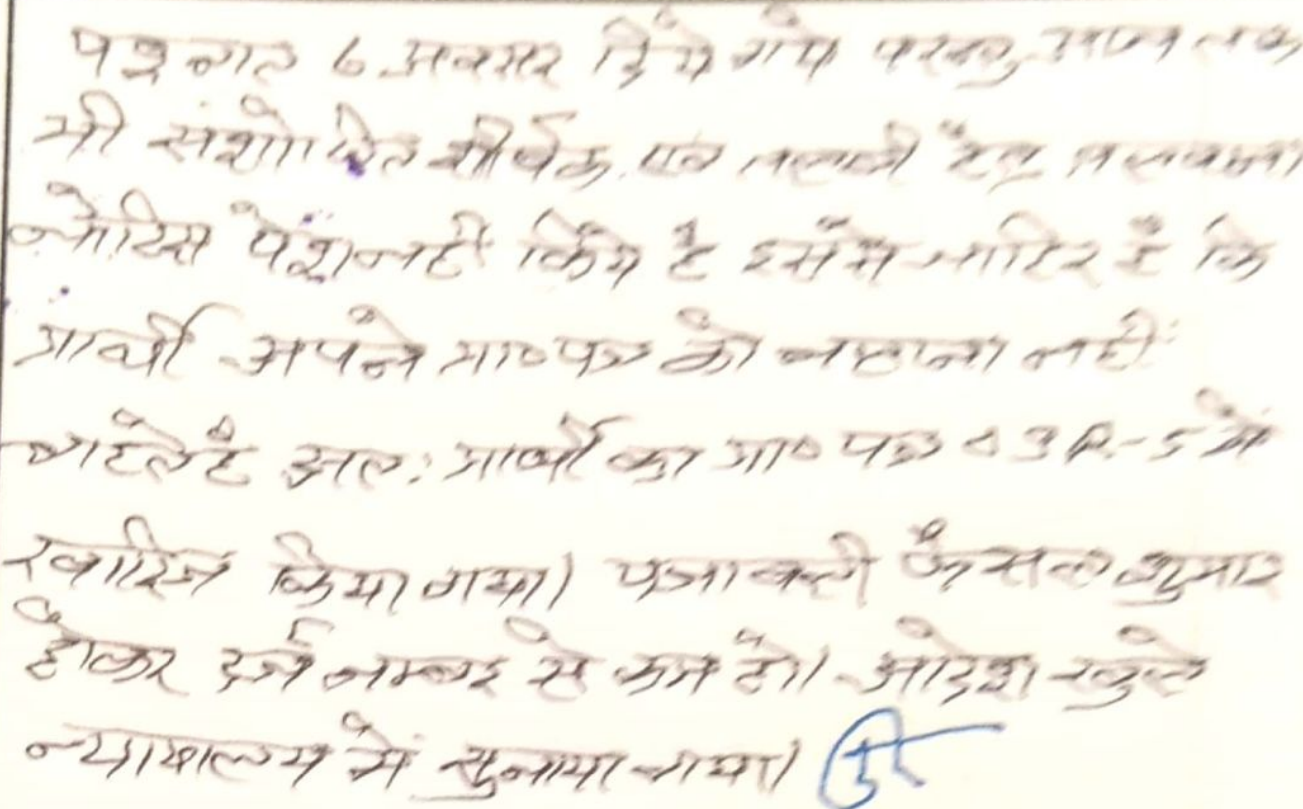 पश्चात 6 अवसर दिये गये परन्तु आज तक
भी संशोधित शीर्षक एवं तलबी हेतु तलवाना
नोटिस पेश नही किये है इससे जाहिर है कि
प्रार्थी अपने प्रा० पत्र को चलाना नही
चाहते है अतः प्रार्थी का प्रा० पत्र 03 R-5 में
खारिज किया गया। पत्रावली फैसल शुमार
होकर दर्ज नम्बर से कम हो। आदेश खुले
न्यायालय में सुनाया गया।